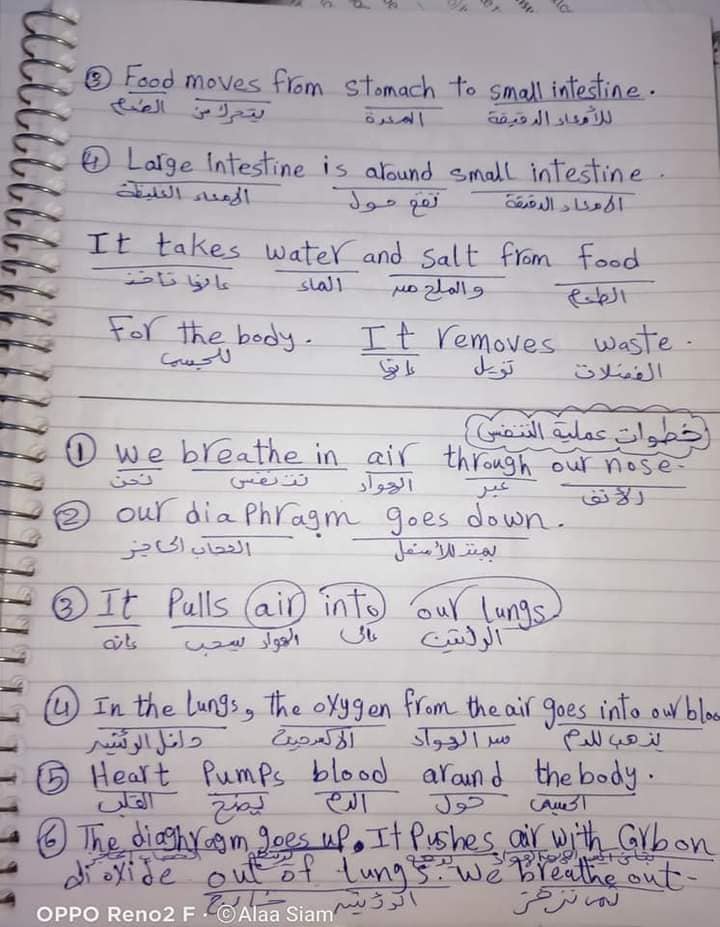 ③ Food moves from stomach to small intestine.
الطعام يتحرك من المعدة للأمعاء الدقيقة
④ Large Intestine is around small intestine.
الأمعاء الغليظة تقع حول الأمعاء الدقيقة
It takes water and salt from food
إنها تأخذ الماء والملح من الطعام
For the body. It removes waste.
للجسم إنها تزيل الفضلات
خطوات عملية التنفس
① we breathe in air through our nose.
نحن نتنفس الهواء عبر الأنف
② our diaphragm goes down.
الحجاب الحاجز للأسفل
③ It Pulls air into our lungs
إنه يسحب الهواء إلى الرئتين
④ In the lungs, the oxygen from the air goes into our bloo
داخل الرئتين الأكسجين من الهواء يذهب للدم
⑤ Heart Pumps blood around the body.
القلب يضخ الدم حول الجسم
⑥ The diaghragm goes up. It Pushes air with Carbon
dioxide out of lungs. We breathe out-
خارج الرئتين
OPPO Reno2 F · ©Alaa Siam